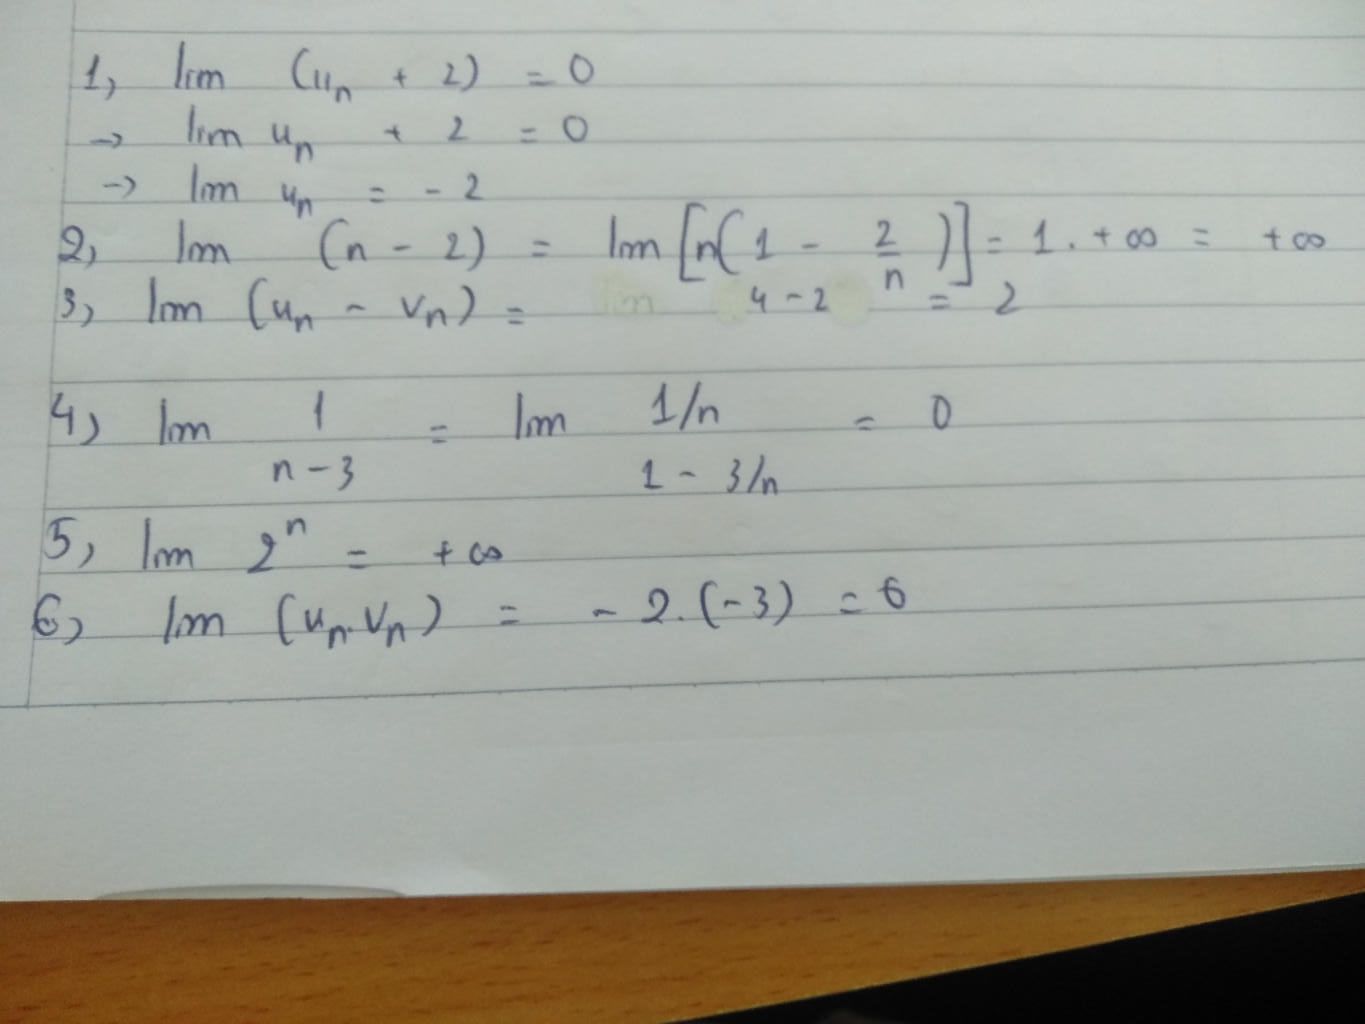 1, lim (un + 2) = 0
→ lim un + 2 = 0
→ lim un = - 2
2, lim (n - 2) = lim [n(1 - 2/n)] = 1. +∞ = +∞
3, lim (un - vn) = 4 - 2 = 2
4, lim 1/(n-3) = lim (1/n)/(1 - 3/n) = 0
5, lim 2^n = +∞
6, lim (un.vn) = - 2.(-3) = 6